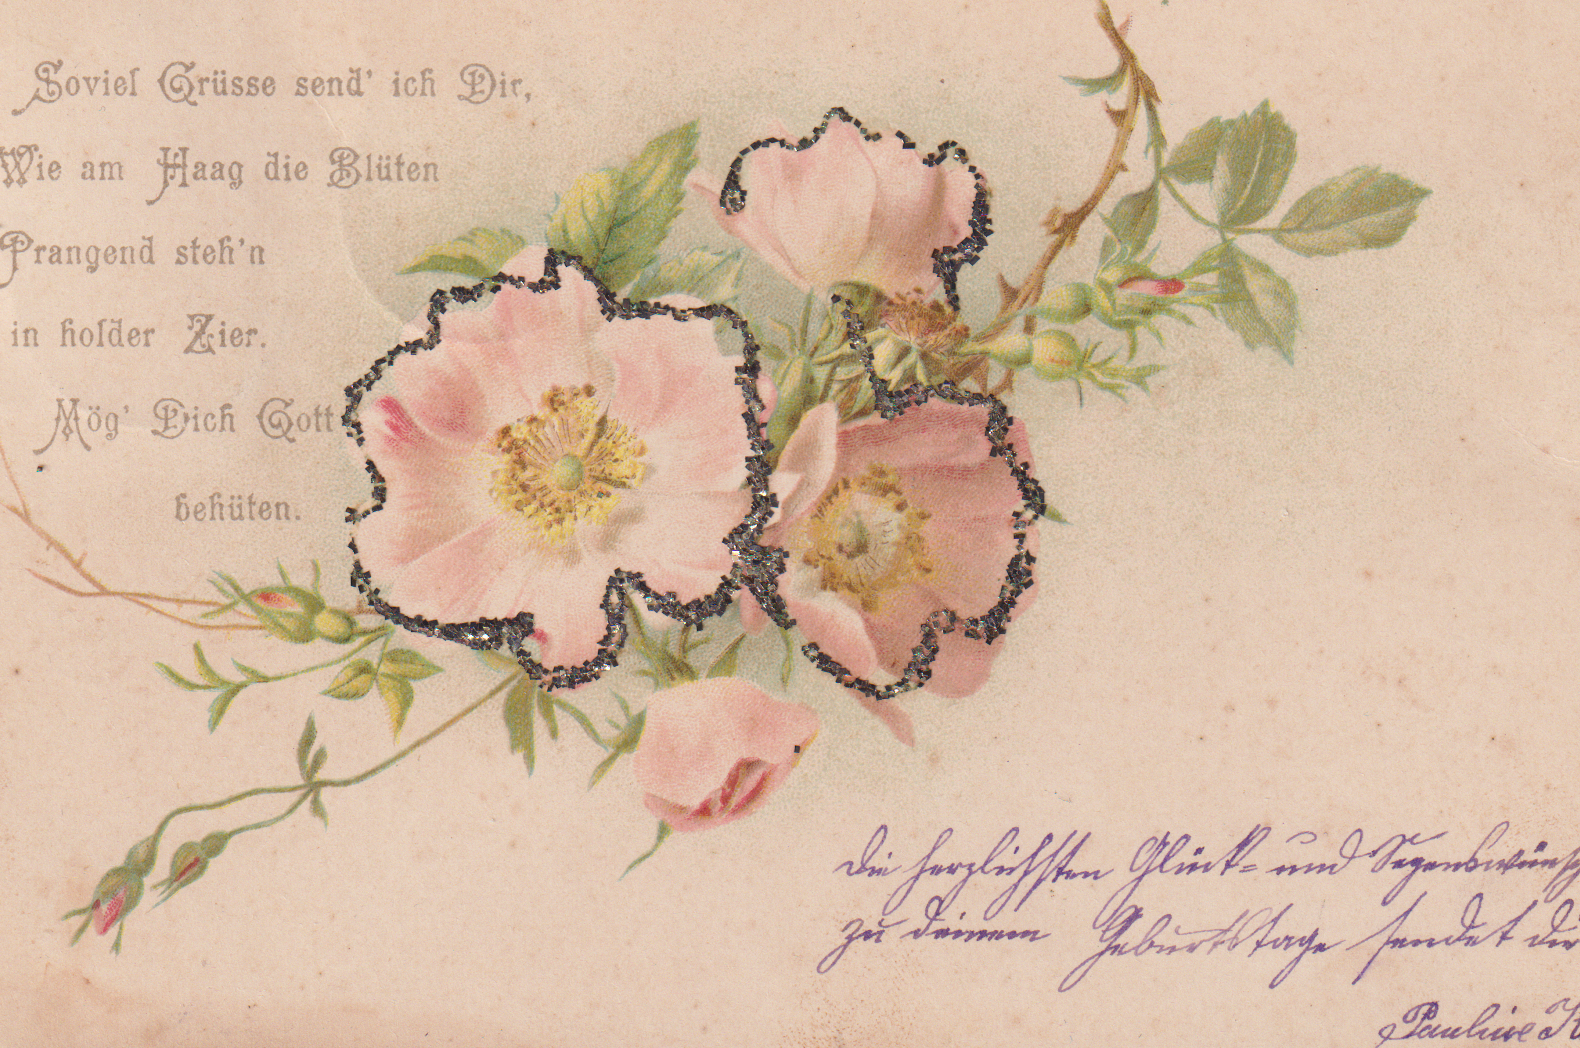 Soviel Grüsse send' ich Dir,
Wie am Haag die Blüten
Prangend steh'n
in holder Zier.
Mög' Dich Gott
behüten.
Die herzlichsten Glück- und Segenswünsch
zu deinem Geburtstage sendet dir
Pauline